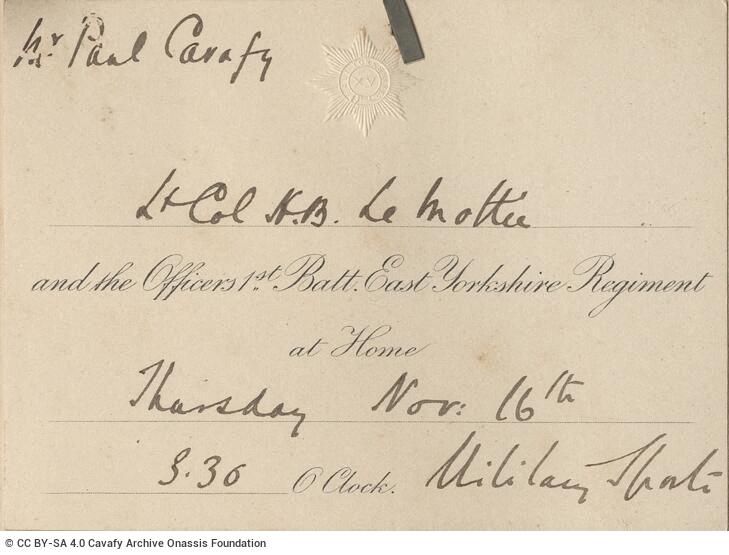 Mr Paul Cavafy
XV
Lt Col H.B. Le Mottée
and the Officers 1st Batt. East Yorkshire Regiment
at Home
Thursday Nov: 16th
3.30 O'Clock. Military Sports
© CC BY-SA 4.0 Cavafy Archive Onassis Foundation